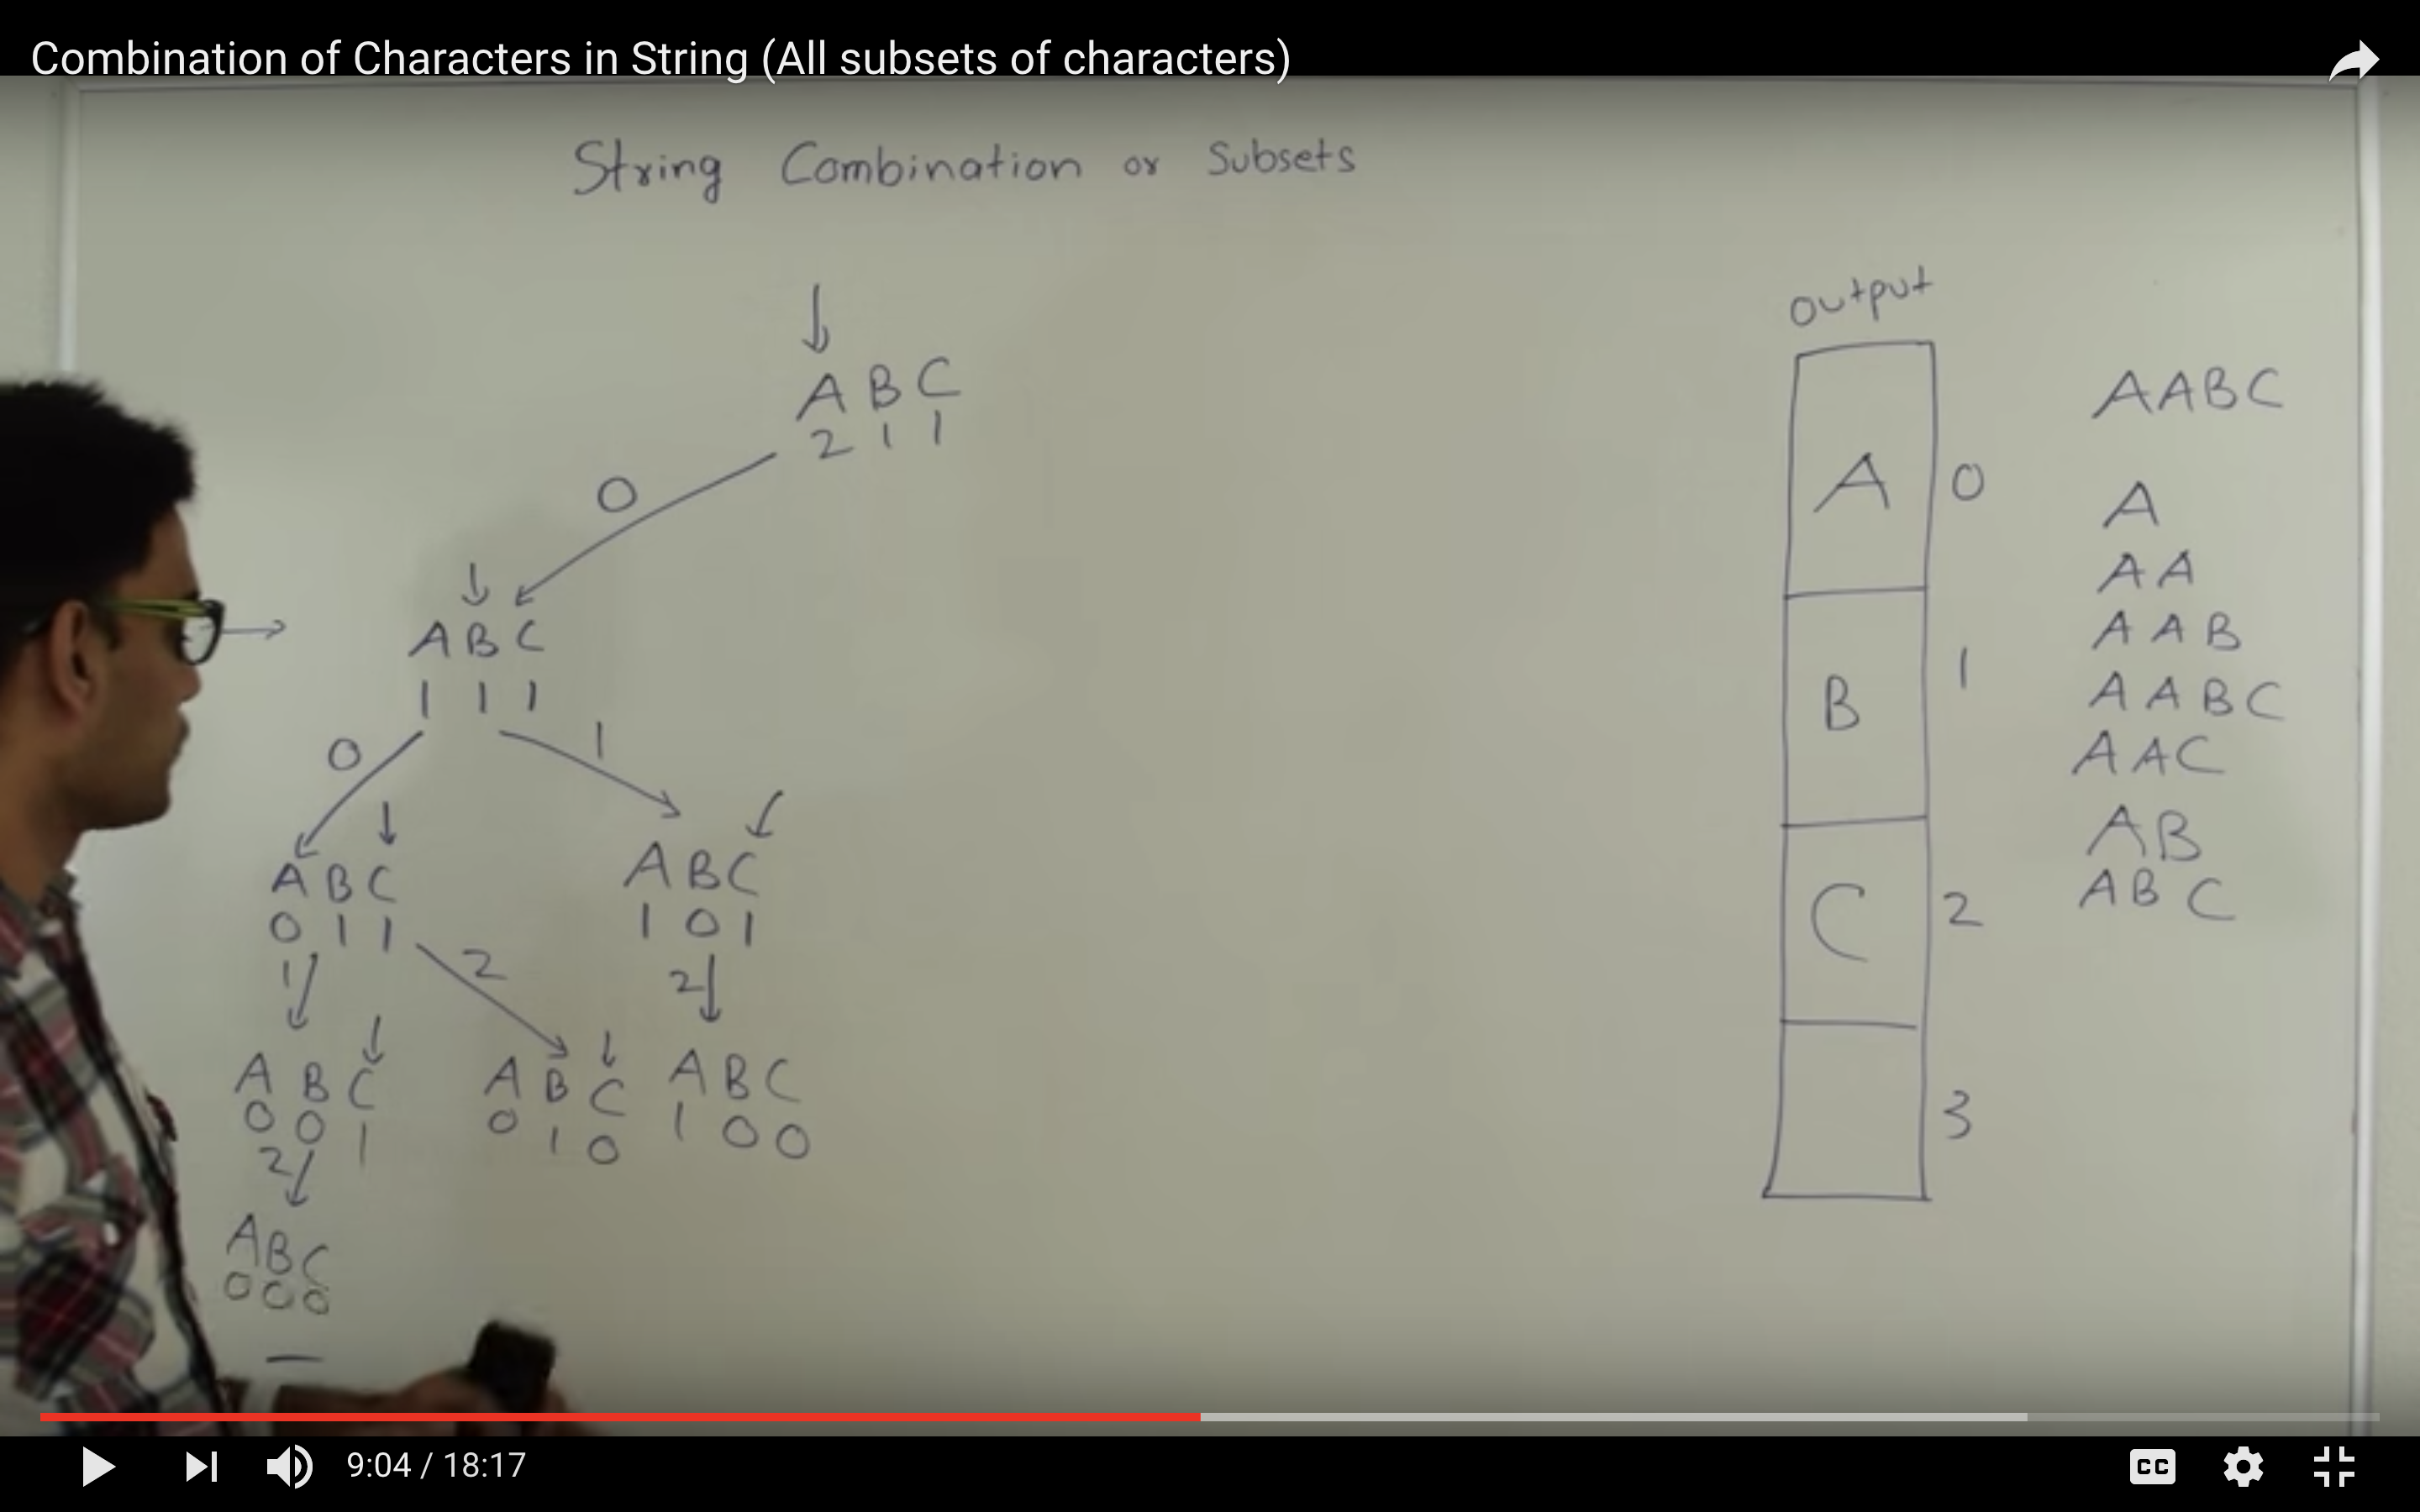 Combination of Characters in String (All subsets of characters)
String Combination or Subsets
output
A B C
2 1 1
0
A B C
1 1 1
0
1
A B C
0 1 1
A B C
1 0 1
1
2
2
A B C
0 0 1
A B C
0 1 0
A B C
1 0 0
2
A B C
0 0 0
A 0
B 1
C 2
3
AABC
A
AA
AAB
AABC
AAC
AB
ABC
9:04 / 18:17
CC